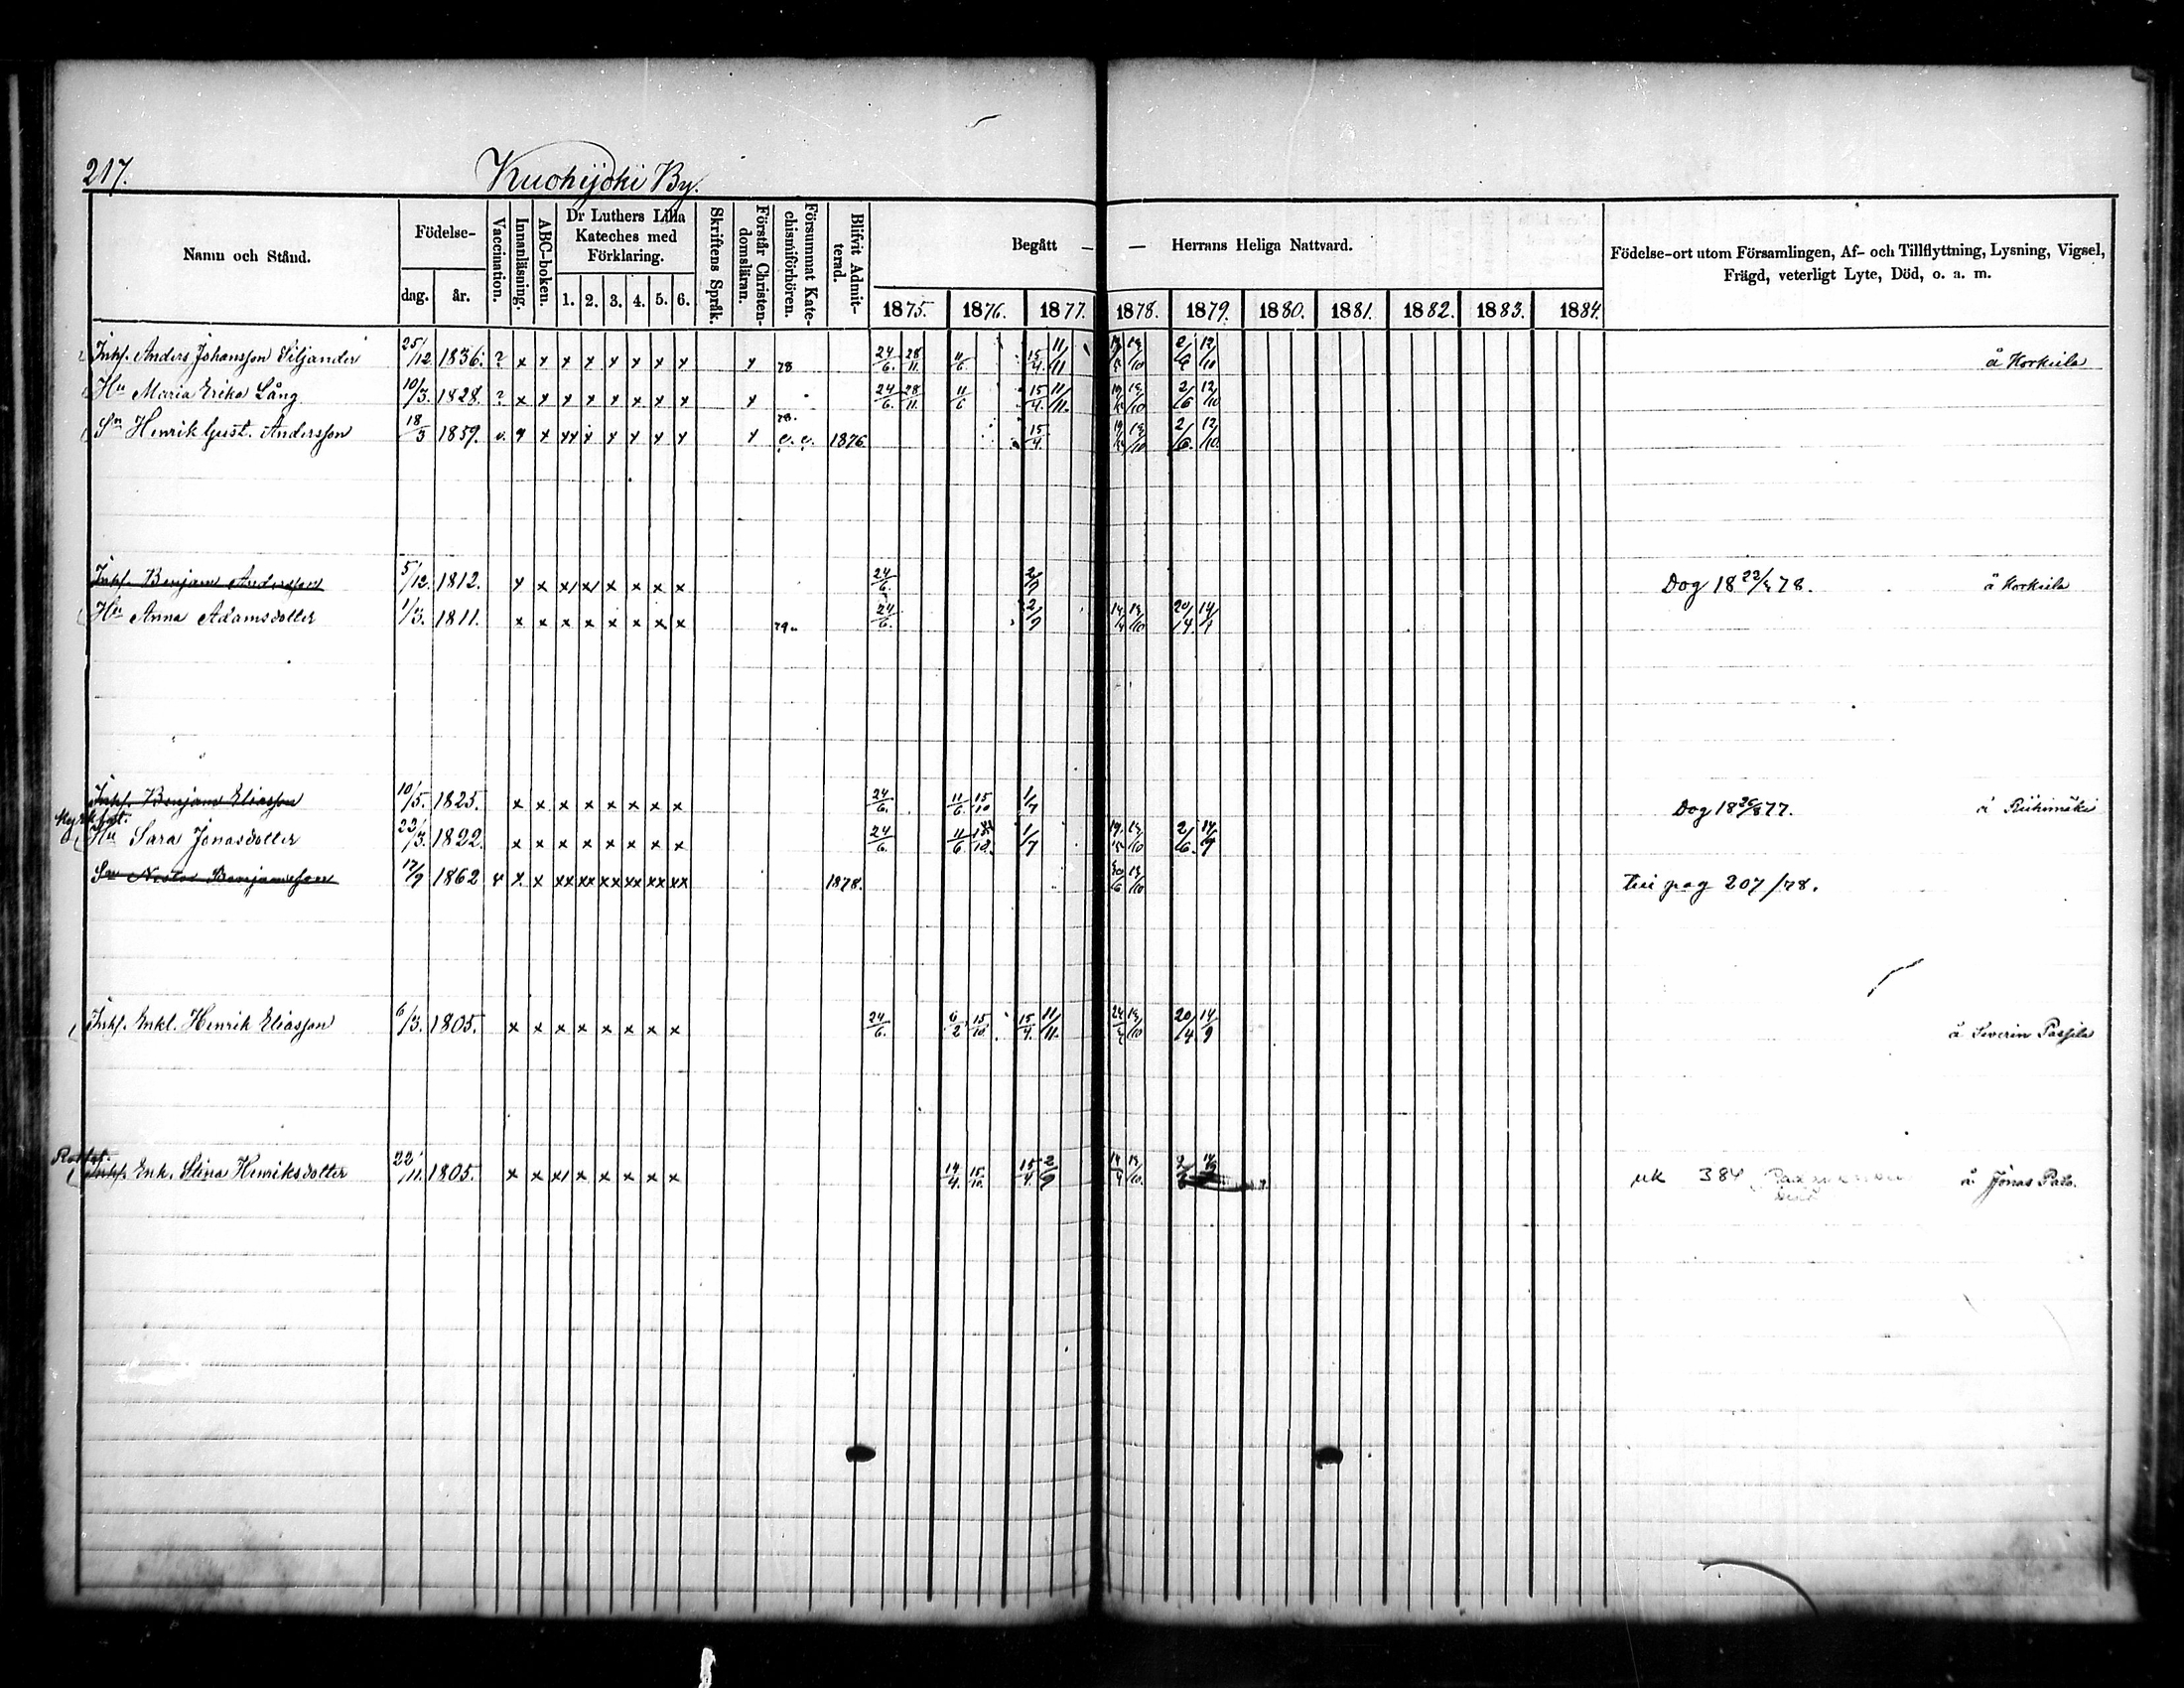 217. Kuohijoki By.
Namn och Stånd. Födelse- dag. år. Vaccination. Innanläsning. ABC-boken. Dr Luthers Lilla Kateches med Förklaring. 1. 2. 3. 4. 5. 6. Skriftens Språk. Förstår Christendomsläran. Försummat Katechismiförhören. Blifvit Admitterad. Begått — — Herrans Heliga Nattvard. Födelse-ort utom Församlingen, Af- och Tillflyttning, Lysning, Vigsel, Frägd, veterligt Lyte, Död, o. a. m.
1875. 1876. 1877. 1878. 1879. 1880. 1881. 1882. 1883. 1884.
Inhs. Anders Johansson Siljander 25/12 1836. ? x x x x x x x x x 78 24/6. 28/11. 11/6 15/4. 11/11 2/6 12/10 å Korkiela
Hu Maria Erika Lång 10/3. 1828. ? x x x x x x x x x 24/6. 28/11. 11/6 15/4. 11/11. 2/6 12/10
Sn Henrik Gust. Andersson 18/3 1859. v. x x xx x x x x x x 1876 15/4. 2/6. 12/10
Inhs. Benjam Andersson 5/12. 1812. x x x x x x x x 24/6. 2/9 Dog 18 78. å Korkiela
Hu Anna Adamsdotter 1/3. 1811. x x x x x x x x 79. 24/6. 2/9 20/4
Inhs. Benjam Eliasson 10/5. 1825. x x x x x x x x 24/6. 11/6 15/10 1/7 Dog 18 77. å Riihimäki
Hu Sara Jonasdotter 22/3. 1822. x x x x x x x x 24/6. 11/6 15/10. 1/7 2/6. 14/9
Sn Nestor Benjamsson 17/9 1862 v x x xx xx xx xx xx xx 1878. 30/6 till pag 207/78.
Inhs. Enkl. Henrik Eliasson 6/3. 1805. x x x x x x x x 24/6. 6/2 15/10. 15/4. 11/11. 20/4 14/9 å Severin Passila
Inhs. Enk. Stina Henriksdotter 22/11. 1805. x x x x x x x x 14/4. 15/10. 15/4. 2/9 14/4 uk 384 å Jonas Palo.